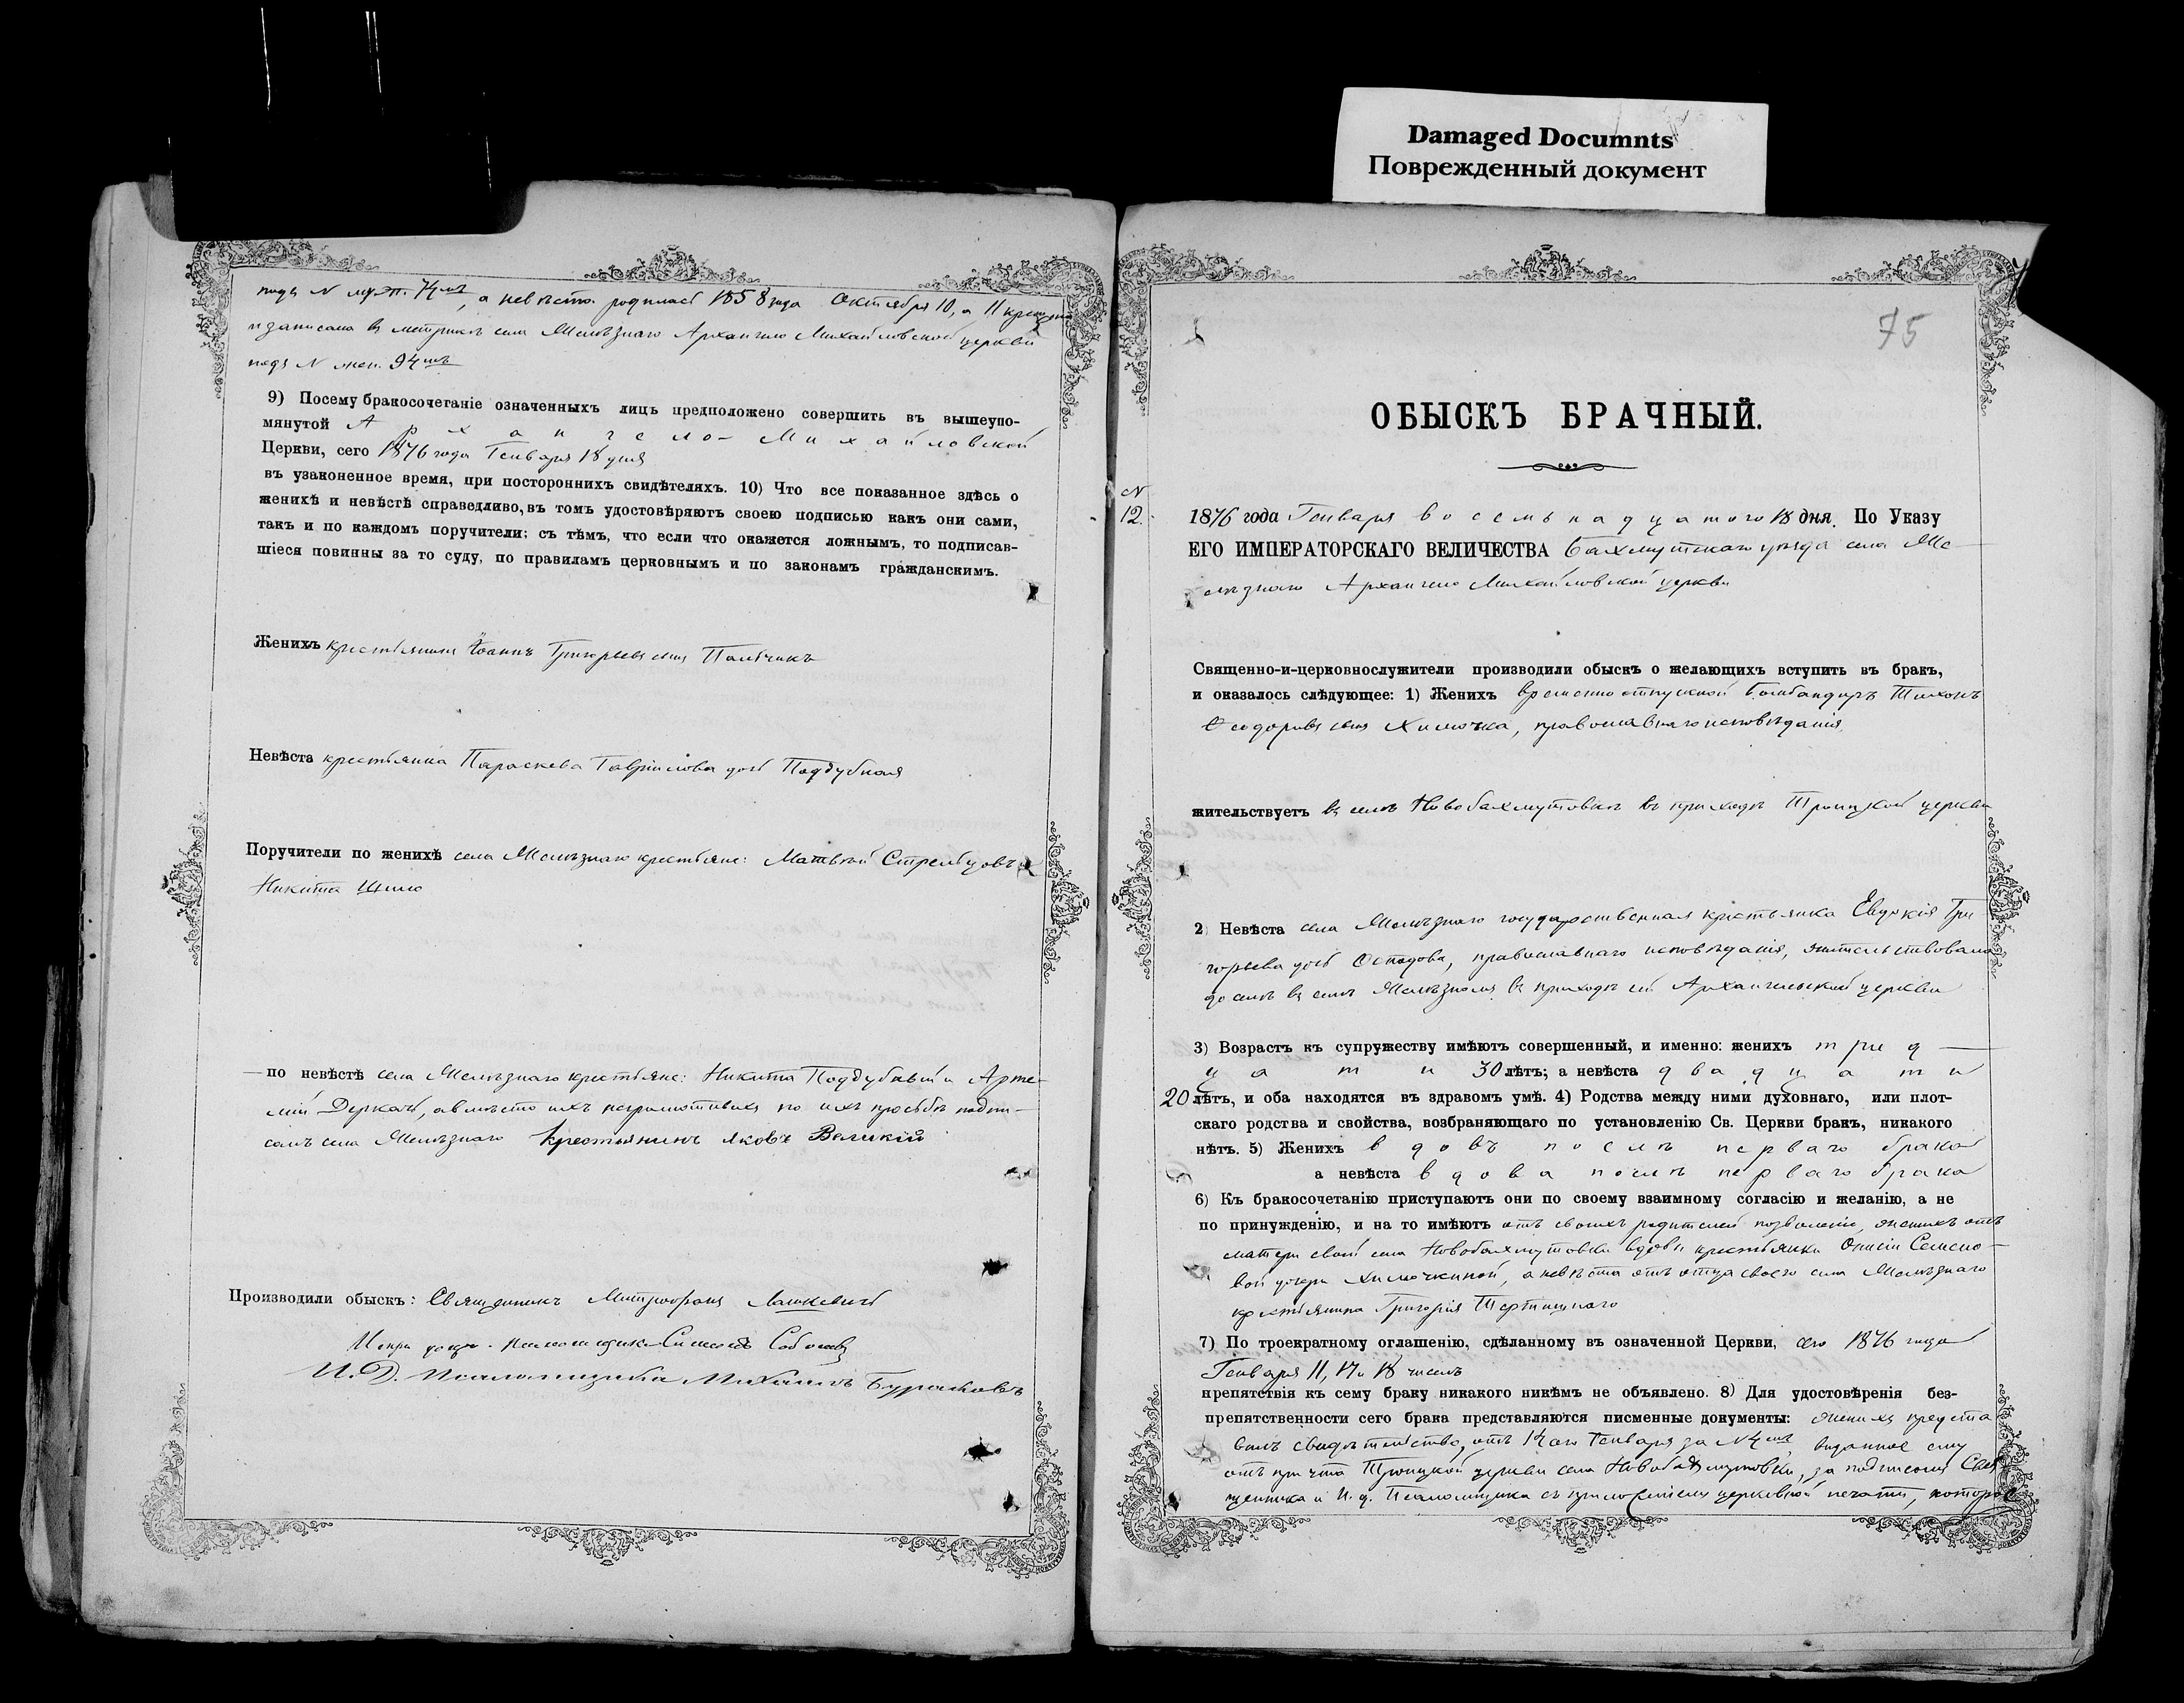 Damaged Documnts
Поврежденный документ
подъ N муж. 74мъ, а невѣста родилась 1858 года Октября 10, а 11 крещена
и записана въ метрикѣ села Желѣзнаго Архангело Михайловской церкви
подъ N жен. 94мъ
9) Посему бракосочетаніе означенныхъ лицъ предположено совершить въ вышеупо-
мянутой Архангело-Михайловской
Церкви, сего 1876 года Генваря 18 дня
въ узаконенное время, при постороннихъ свидѣтеляхъ. 10) Что все показанное здѣсь о
женихѣ и невѣстѣ справедливо, въ томъ удостовѣряютъ своею подписью какъ они сами,
такъ и по каждомъ поручители; съ тѣмъ, что если что окажется ложнымъ, то подписав-
шіеся повинны за то суду, по правиламъ церковнымъ и по законамъ гражданскимъ.
Женихъ крестьянинъ Іоаннъ Григорьевъ сынъ Пальчикъ
Невѣста крестьянка Параскева Гавріилова дочь Поддубная
Поручители по женихѣ села Желѣзнаго крестьяне: Матвѣй Стрельцовъ и
Никита Шило
— по невѣстѣ села Желѣзнаго крестьяне: Никита Поддубный и Арте-
мій Деркачь, а вмѣсто ихъ неграмотныхъ по ихъ просьбѣ подпи-
салъ села Желѣзнаго крестьянинъ Яковъ Великій
Производили обыскъ: Священникъ Митрофанъ Лашкевичь
Испр. должн. псаломщика Симеонъ Соболевъ
И. Д. Псаломщика Михаилъ Бураковъ
75
ОБЫСКЪ БРАЧНЫЙ.
N
12.
1876 года Генваря восемьнадцатого 18 дня. По Указу
ЕГО ИМПЕРАТОРСКАГО ВЕЛИЧЕСТВА Бахмутскаго уѣзда села Же-
лѣзнаго Архангело Михайловской церкви
Священно-и-церковнослужители производили обыскъ о желающихъ вступить въ бракъ,
и оказалось слѣдующее: 1) Женихъ временно отпускной Бомбандиръ Тихонъ
Ѳеодоровъ сынъ Химочка, православнаго исповѣданія,
жительствуетъ въ селѣ Новобахмутовкѣ въ приходѣ Троицкой церкви
2) Невѣста села Желѣзнаго государственная крестьянка Евдокія Гри
горьева дочь православнаго исповѣданія, жительствовала
до селѣ въ селѣ Желѣзномъ въ приходѣ сей Архангельской церкви
3) Возрастъ къ супружеству имѣютъ совершенный, и именно: женихъ трид-
цати 30 лѣтъ; а невѣста двадцати
20 лѣтъ, и оба находятся въ здравомъ умѣ. 4) Родства между ними духовнаго, или плот-
скаго родства и свойства, возбраняющаго по установленію Св. Церкви бракъ, никакого
нѣтъ. 5) Женихъ вдовъ послѣ перваго брака
а невѣста вдова послѣ перваго брака
6) Къ бракосочетанію приступаютъ они по своему взаимному согласію и желанію, а не
по принужденію, и на то имѣютъ отъ своихъ родителей позволеніе, женихъ отъ
матери своей села Новобахмутовки вдовы крестьянки Семено-
вой дочери Химочкиной, а невѣста отъ отца своего села Желѣзнаго
крестьянина Григорія
7) По троекратному оглашенію, сдѣланному въ означенной Церкви, сего 1876 года
Генваря 11, 17 и 18 числъ
препятствія къ сему браку никакого никѣмъ не объявлено. 8) Для удостовѣренія без-
препятственности сего брака представляются писменные документы: женихъ предста
вилъ свидѣтельство, отъ Генваря за N 4мъ, выданное ему
отъ причта Троицкой церкви села Новобахмутовки, за подписомъ Свя
щенника и И. д. Псаломщика съ приложеніемъ церковной печати, которое